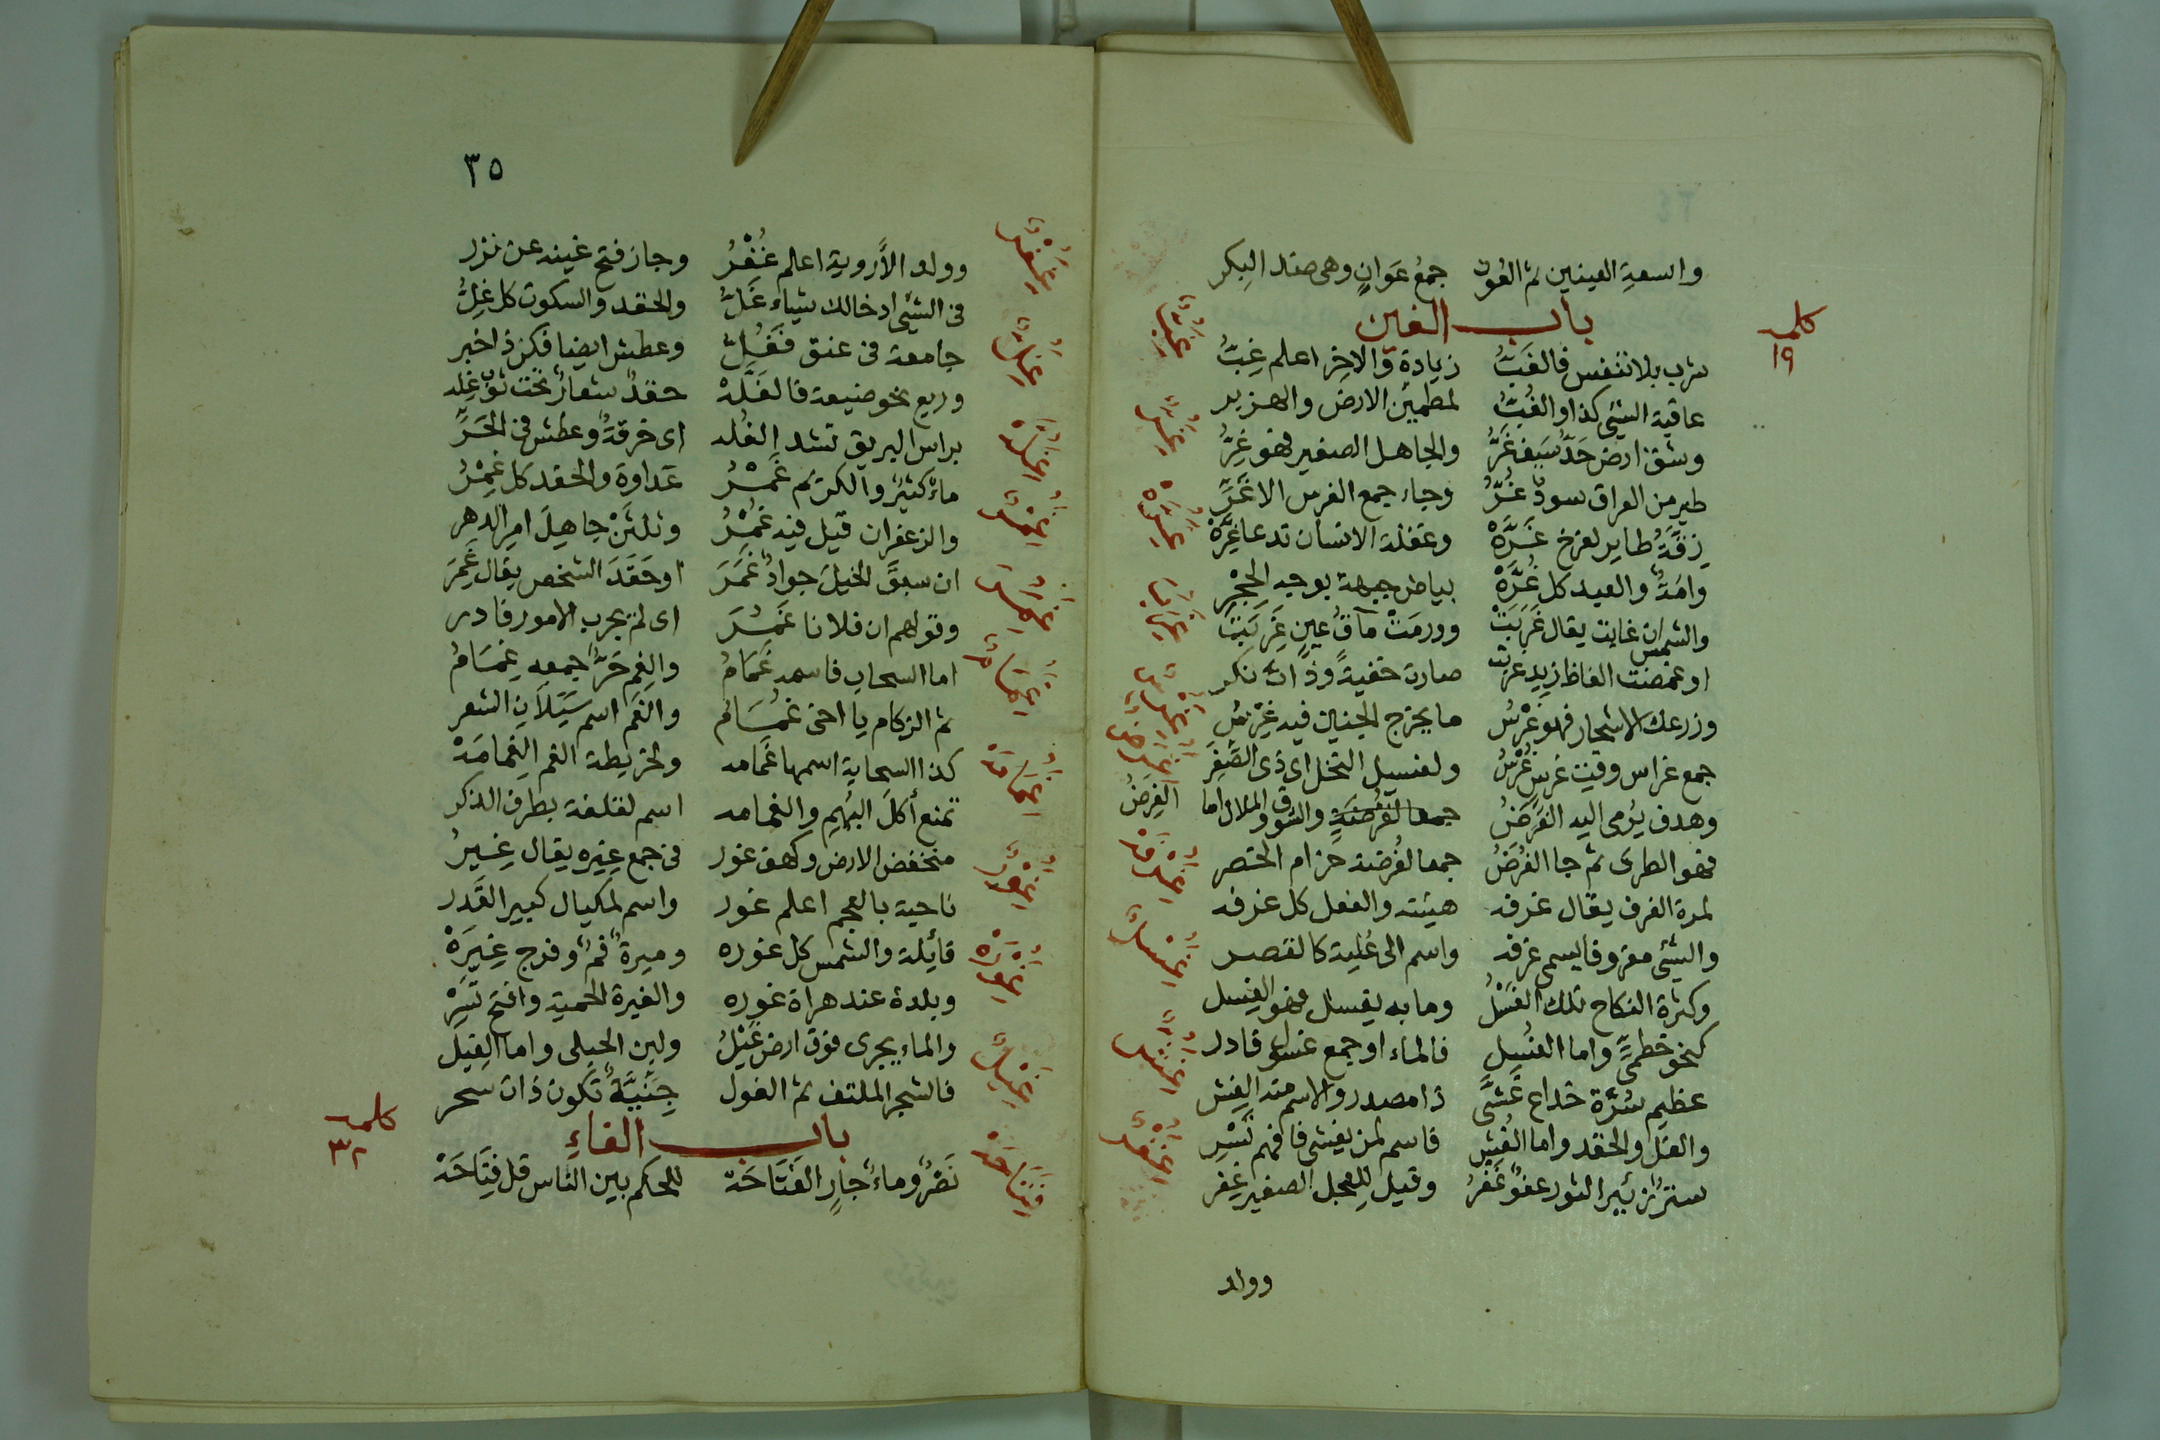 واسعة العينين ثم العُون جمعُ عَوانٍ وهى ضد البِكر
باب الغين
كلمه ١٩
شرب بلا تنفس فالغَبُّ زيادة والاخر اعلم غِبُّ
عاقبة الشئ كذا والغُبُّ لمطمئن الارض والهزبر
وشق ارض حَدُّ سَيفٍ غَرُّ والجاهل الصغير فهو غِرُّ
طير من العراق سودٌ غُرُّ وجاء جمع الفرس الاغَرِّ
زِقَّةُ طاير لفرخ غَرَّهْ وغفلة الانسان تدعا غِرَّهْ
وامَةٌ والعبد كل غُرَّهْ بياض جبهة بوجه الحِجْرِ
والشمس ان غابت يقال غَرَبَتْ وورمَتْ مآقُ عينٍ غَرِبَتْ
او غمضت الفاظ زيد غربت صارت خفيةً وذات نكر
وزرعك الاشجار فهو غَرْسُ ما يخرج الجنين فيه غِرْسُ
جمع غراس وقيت غرسٍ غُرْسُ ولفسيل النخل اى ذى الصِّغَرِ
وهدف يُرمى اليه الغَرَضُ والشوق والملال اما الغَرِضُ
فهو الطرى ثم جا الغُرُضُ جمعا لغُرضة حزام الخصر
لمرة الغرف يقال غرفه هيئته والفعل كل غرفه
والشئ مغروفا يسمى غرفه واسم الى عُلية كالقصر
وكثرة النكاح تلك الغَسْلُ وما به يغسل فهو الغِسل
كنحو خطمىٍّ واما الغُسل فالماء او جمع غسول فادر
عظيم سُرَّة خداع غَشَّى ذا مصدر والاسم منه الغِش
والغل والحقد واما الغُشِ فاسم لمن يغشى فافهم تَسْرِ
ستر زئبر الثور عفوٌ غَفْرُ وقيل للعجل الصغير غِفر
وولد
غبّ
غرّ
غرّه
غربت
غرس
غرض
غرفه
غسل
غش
غفر
٣٥
وولد الأروية اعلم غُفْرُ وجاز فتح غينه عن نزر
فى الشئ ادخالك شياء غَلُّ والحقد والسكون كل غِلُّ
جامعة فى عنق فَغُلُّ وعطش ايضا فكن ذا خبر
وريع نحو ضيعة فالغَلَّهْ حقدٌ شعارٌ تحت ثوب غِلّه
براس ابريق تشد الغُله اى خرقةٌ وعطش فى الحَرِّ
ماءٌ كثيرٌ والكريم غَمْرُ عداوة والحقد كل غِمْرُ
والزعفران قيل فيه غُمْرُ وثلثَنْ جاهِلَ امرِ الدهر
ان سبقَ الخيلَ جوادٌ غَمَرَ او حَقَدَ الشخص يقال غَمِرَ
وتولهم ان فلانا غَمُرَ اى لم يجرب الامور فادر
اما السحاب فاسمه غَمَامُ والغم حَرٌّ جمعه غِمَامُ
ثم الزكام يا اخى غُمَامُ والغَمَم اسم سَيَلاَنِ الشعر
كذا السحابة اسمها غَمامه ولخريطة الفم الغِمامَهْ
تمنع أكلَ البُهِمِ والغمامه اسم لقلفة بطرف الذكر
منخفض الارض وكهف غَور فى جمع غِيَرِه يقال غِيَرُ
ناحية بالعجم اعلم غور واسم لمكيال كبير القَدر
قائلة والشمس كل غوره وميرة فمٌ وفرج غِيرَهْ
وبلدة عند هراة غوره والغيرة الحمية وافتح تَسِرْ
والماء يجرى فوق ارض غَيْلُ ولبن الحبلى واما الغِيل
فالشجر الملتف ثم الغول جِنِّيَّةٌ تكون ذات سحر
باب الفاء
كلمه ٣٢
نَصْرٌ وماءٌ جارٍ الفَتَاحَهْ للحكم بين الناس قل فِتَاحَهْ
غفر
غلّ
غلّه
غمر
غمر
غمام
غمامة
غور
غوره
غيل
فتاحة